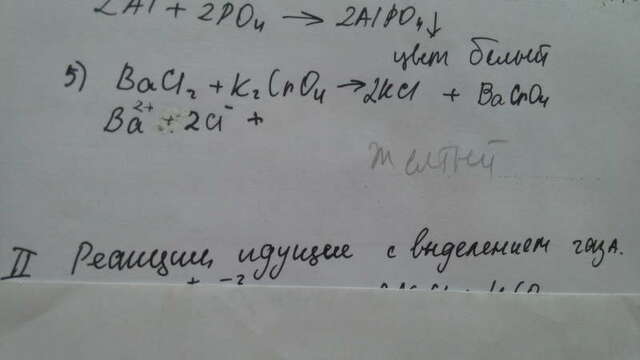 2Al + 2PO₄ → 2AlPO₄↓
цвет белый
5) BaCl₂ + K₂CrO₄ → 2KCl + BaCrO₄
Ba²⁺ + 2Cl⁻ +
желтый
II Реакции, идущие с выделением газа.